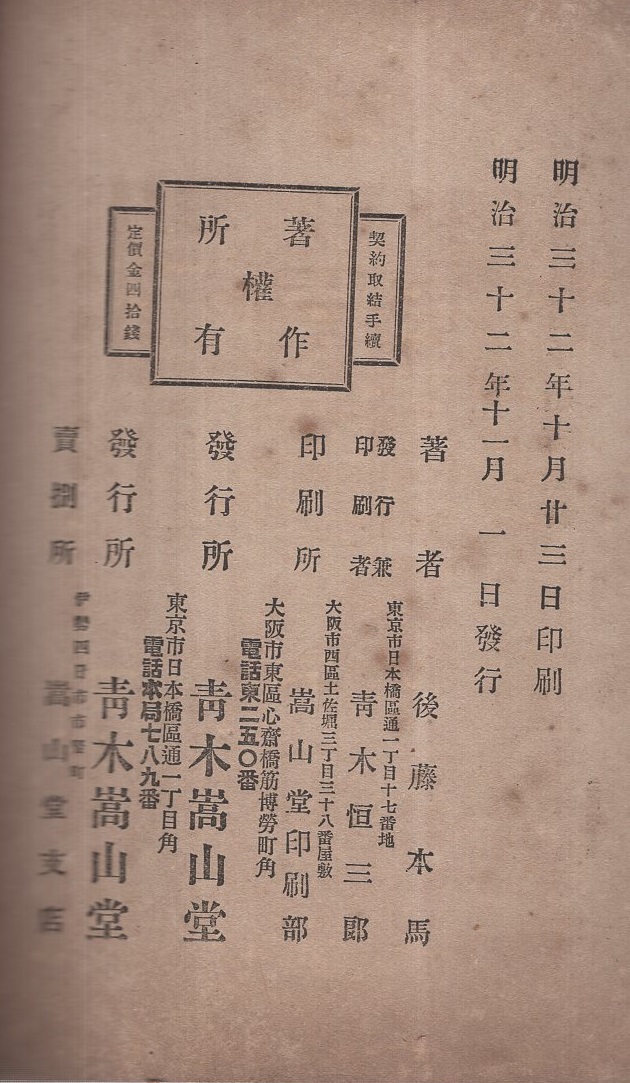 明治三十二年十月廿三日印刷
明治三十二年十一月一日發行
契約取結手續
著作權所有
定價金四拾錢
著者
後藤本馬
發行兼
印刷者
東京市日本橋區通一丁目十七番地
青木恒三郎
印刷所
大阪市西區土佐堀三丁目三十八番屋敷
嵩山堂印刷部
發行所
大阪市東區心齋橋筋博勞町角
電話東二五〇番
青木嵩山堂
發行所
東京市日本橋區通一丁目角
電話本局七八九番
青木嵩山堂
賣捌所
伊勢四日市市町
嵩山堂支店